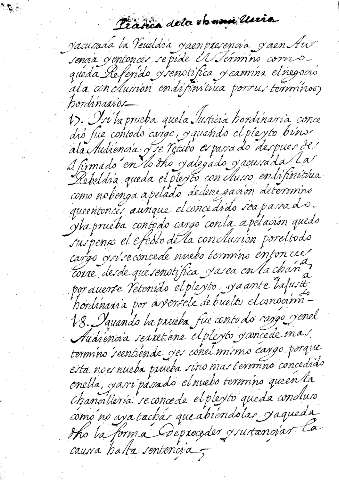 Pratica de la Chanzilleria
yacusada la Rebeldia yaenpresencia yaen Au
sencia yentonces sepide el termino como
queda Referido ysenotifica y camina el negocio
ala conclusion en difinitiva por sus terminos
hordinarios
17. Y si la prueba que la Justicia hordinaria conce
dio fue contodo cargo, y quando el pleyto bino
ala Audiencia y se Recibio es pasado despues de
afirmado en lo dho yalegado y acusada la
Rebeldia queda el pleyto concluso en difinitiva
como no benga apelado de denegacion de termino
que entonces aunque el concedido sea pasado
y la prueba contodo cargo con la apelacion quedo
suspenso el efecto de la conclusion por el todo
cargo y si se concede nuebo termino entonces
corre desde que se notifica, y a sea en la chan
por averse Retenido el pleyto, ya ante la justi
hordinaria por aversele debuelto el conocimi
18. Y quando la prueba fue contodo cargo y en el
Audiencia se retiene el pleyto y concede mas
termino se entiende yes con el mismo cargo porque
esta no es nueba prueba sino mas termino concedido
en ella, y asi pasado el nuebo termino que en la
chancilleria se concede el pleyto queda concluso
como no aya tachas que abiendolas ya queda
dho la forma de proceder y sustanciar la
causa hasta sentencia